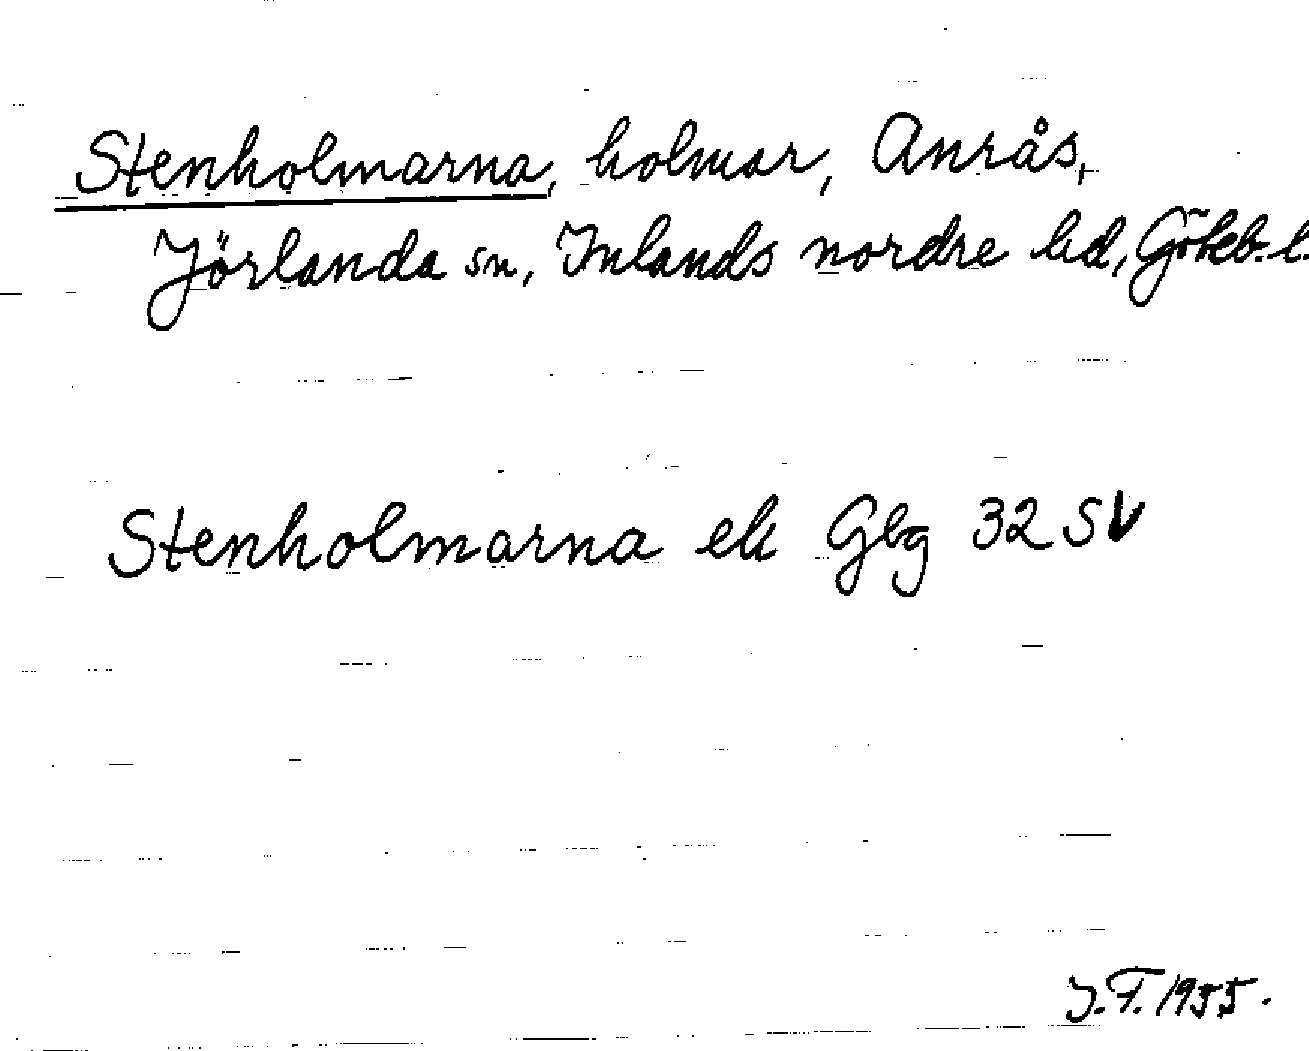 Stenholmarna, holmar, Anrås,
Jörlanda sn, Inlands nordre hd, Göteb. l.
Stenholmarna ek Gbg 32 SV
J.F. 1955.